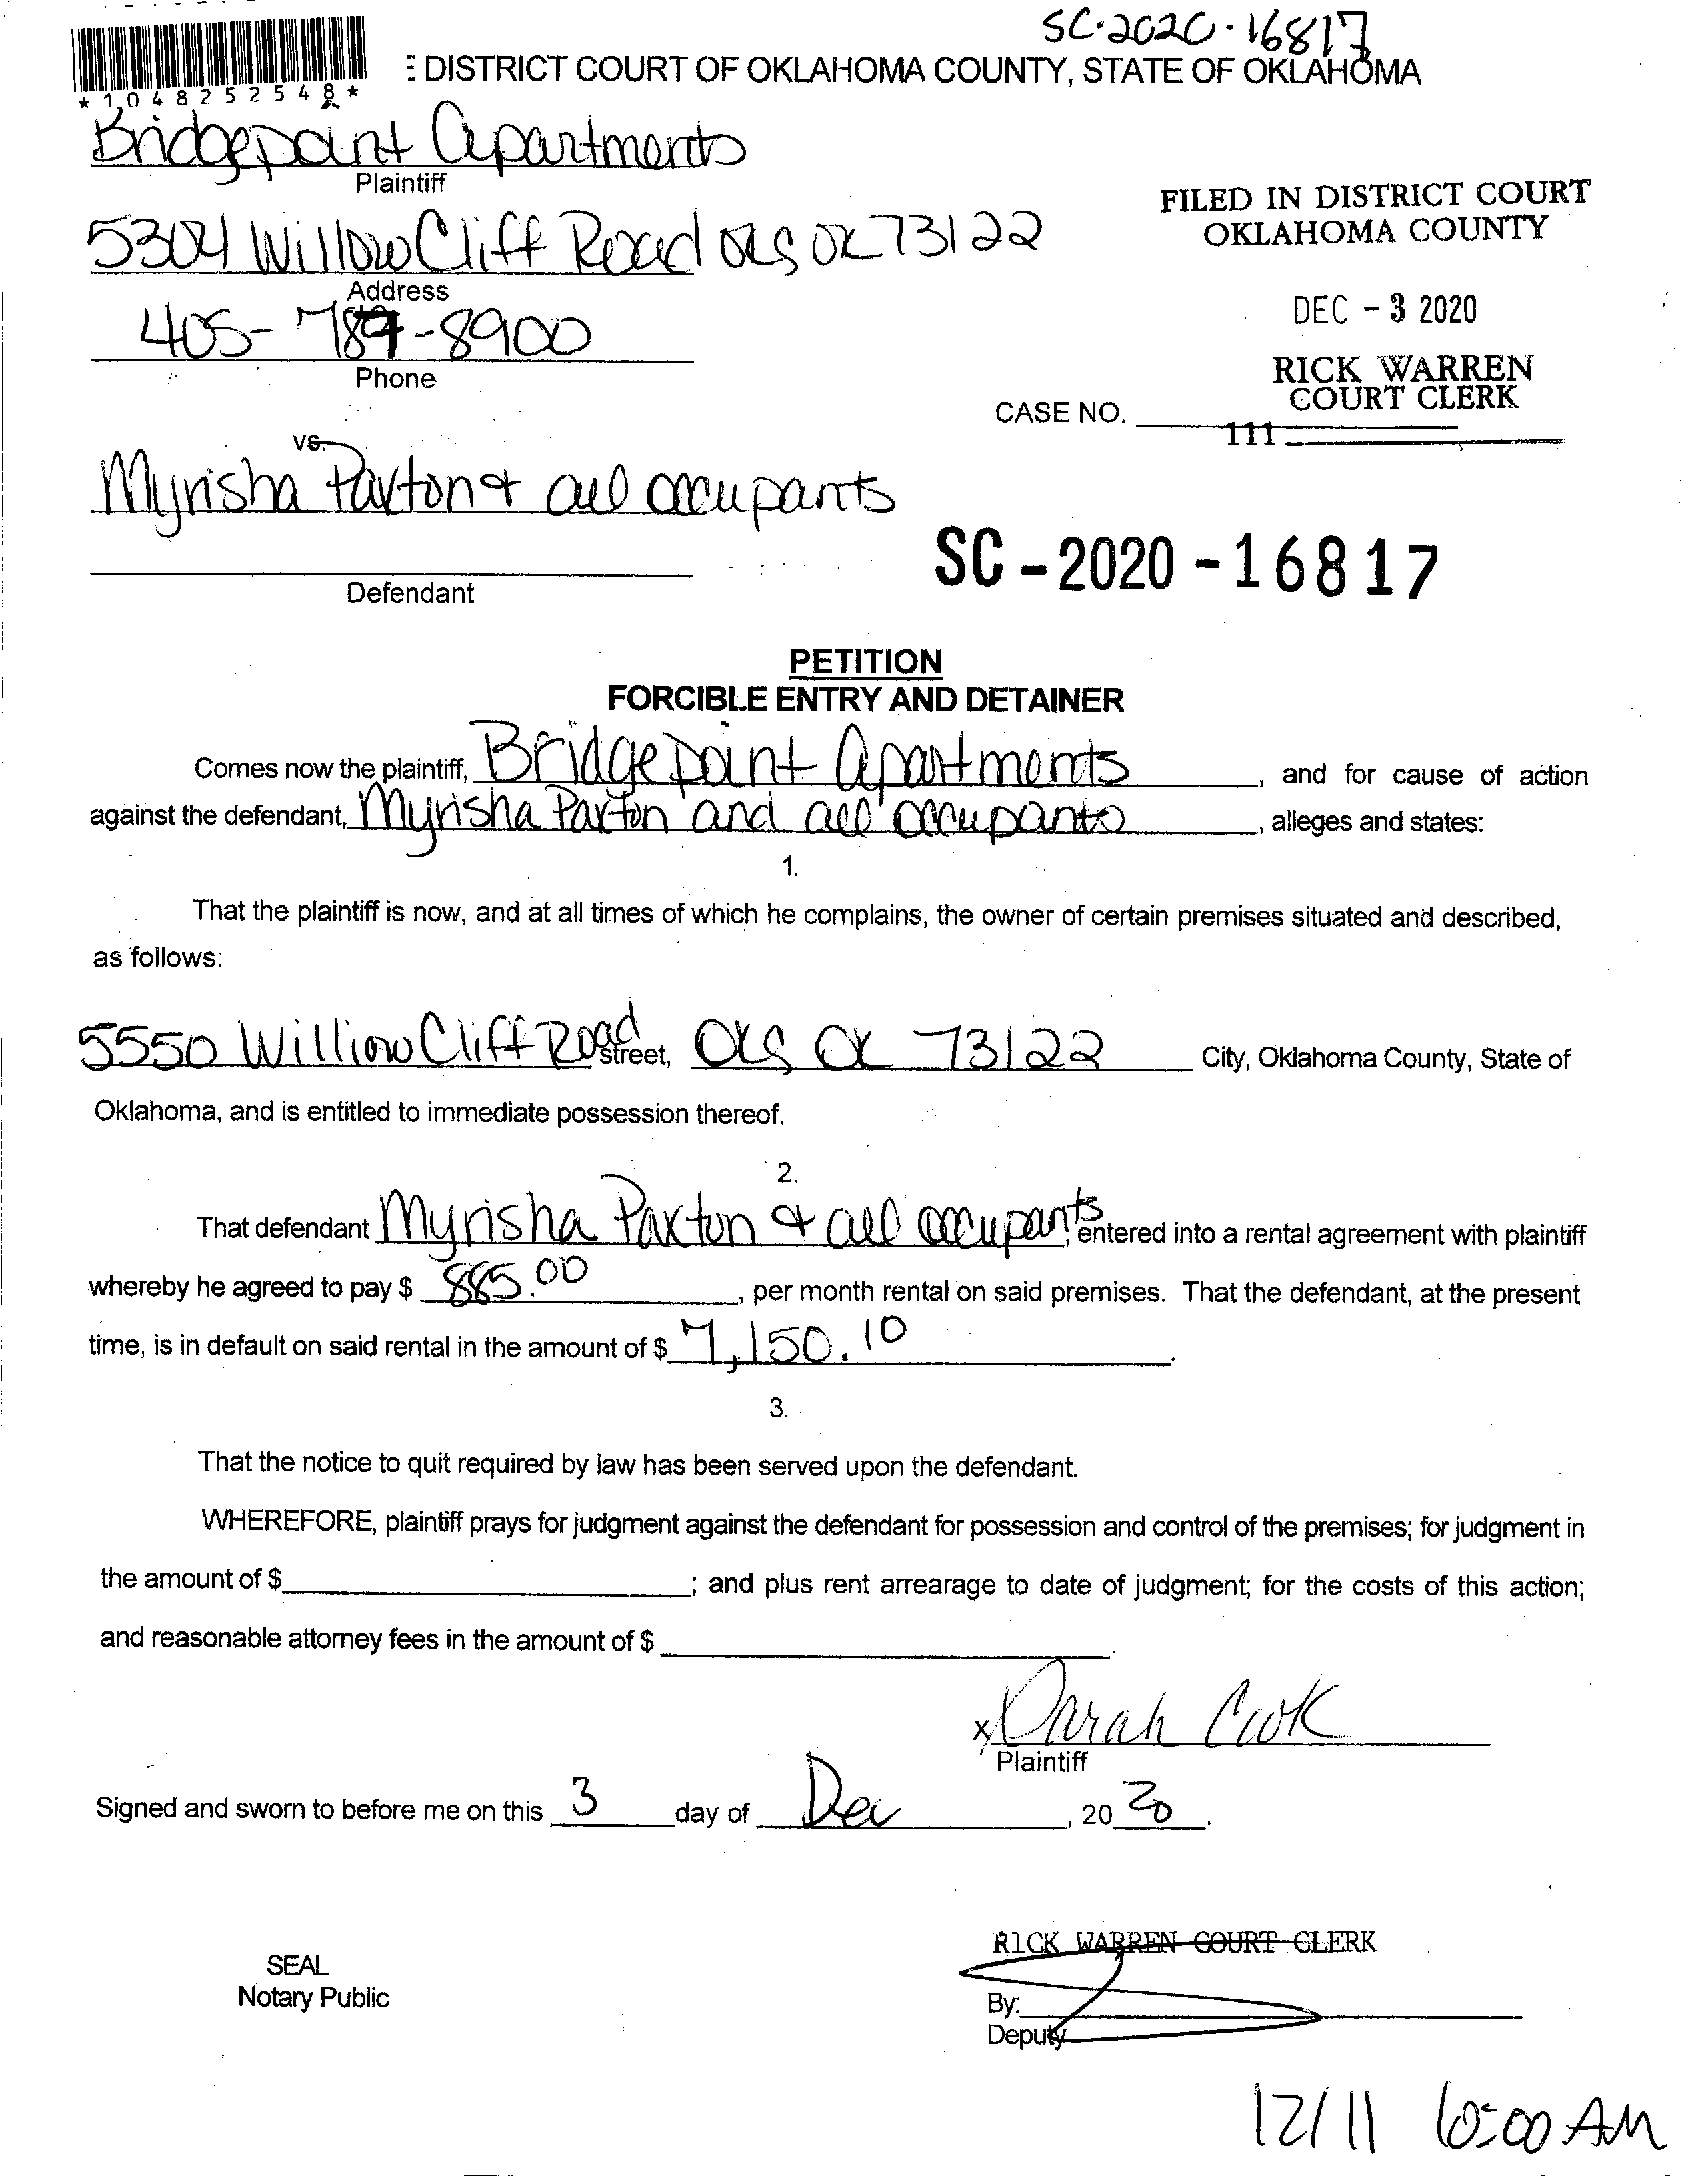 SC-2020-16817
: DISTRICT COURT OF OKLAHOMA COUNTY, STATE OF OKLAHOMA
* 1 0 4 8 2 5 2 5 4 8 *
Bridgepoint Apartments
Plaintiff
FILED IN DISTRICT COURT
OKLAHOMA COUNTY
5304 Willow Cliff Road OKC OK 73122
Address
DEC - 3 2020
405-789-8900
Phone
RICK WARREN
COURT CLERK
CASE NO.
111
vs.
Myrisha Paxton & all occupants
SC - 2020 - 16817
Defendant
PETITION
FORCIBLE ENTRY AND DETAINER
Comes now the plaintiff, Bridgepoint Apartments, and for cause of action
against the defendant, Myrisha Paxton and all occupants, alleges and states:
1.
That the plaintiff is now, and at all times of which he complains, the owner of certain premises situated and described,
as follows:
5550 Willow Cliff Road Street, OKC OK 73122 City, Oklahoma County, State of
Oklahoma, and is entitled to immediate possession thereof.
2.
That defendant Myrisha Paxton & all occupants, entered into a rental agreement with plaintiff
whereby he agreed to pay $ 885.00, per month rental on said premises. That the defendant, at the present
time, is in default on said rental in the amount of $ 7,150.10.
3.
That the notice to quit required by law has been served upon the defendant.
WHEREFORE, plaintiff prays for judgment against the defendant for possession and control of the premises; for judgment in
the amount of $ ; and plus rent arrearage to date of judgment; for the costs of this action;
and reasonable attorney fees in the amount of $ .
x Sarah Cook
Plaintiff
Signed and sworn to before me on this 3 day of Dec, 20 20.
RICK WARREN COURT CLERK
SEAL
Notary Public
By:
Deputy
12/11 AM